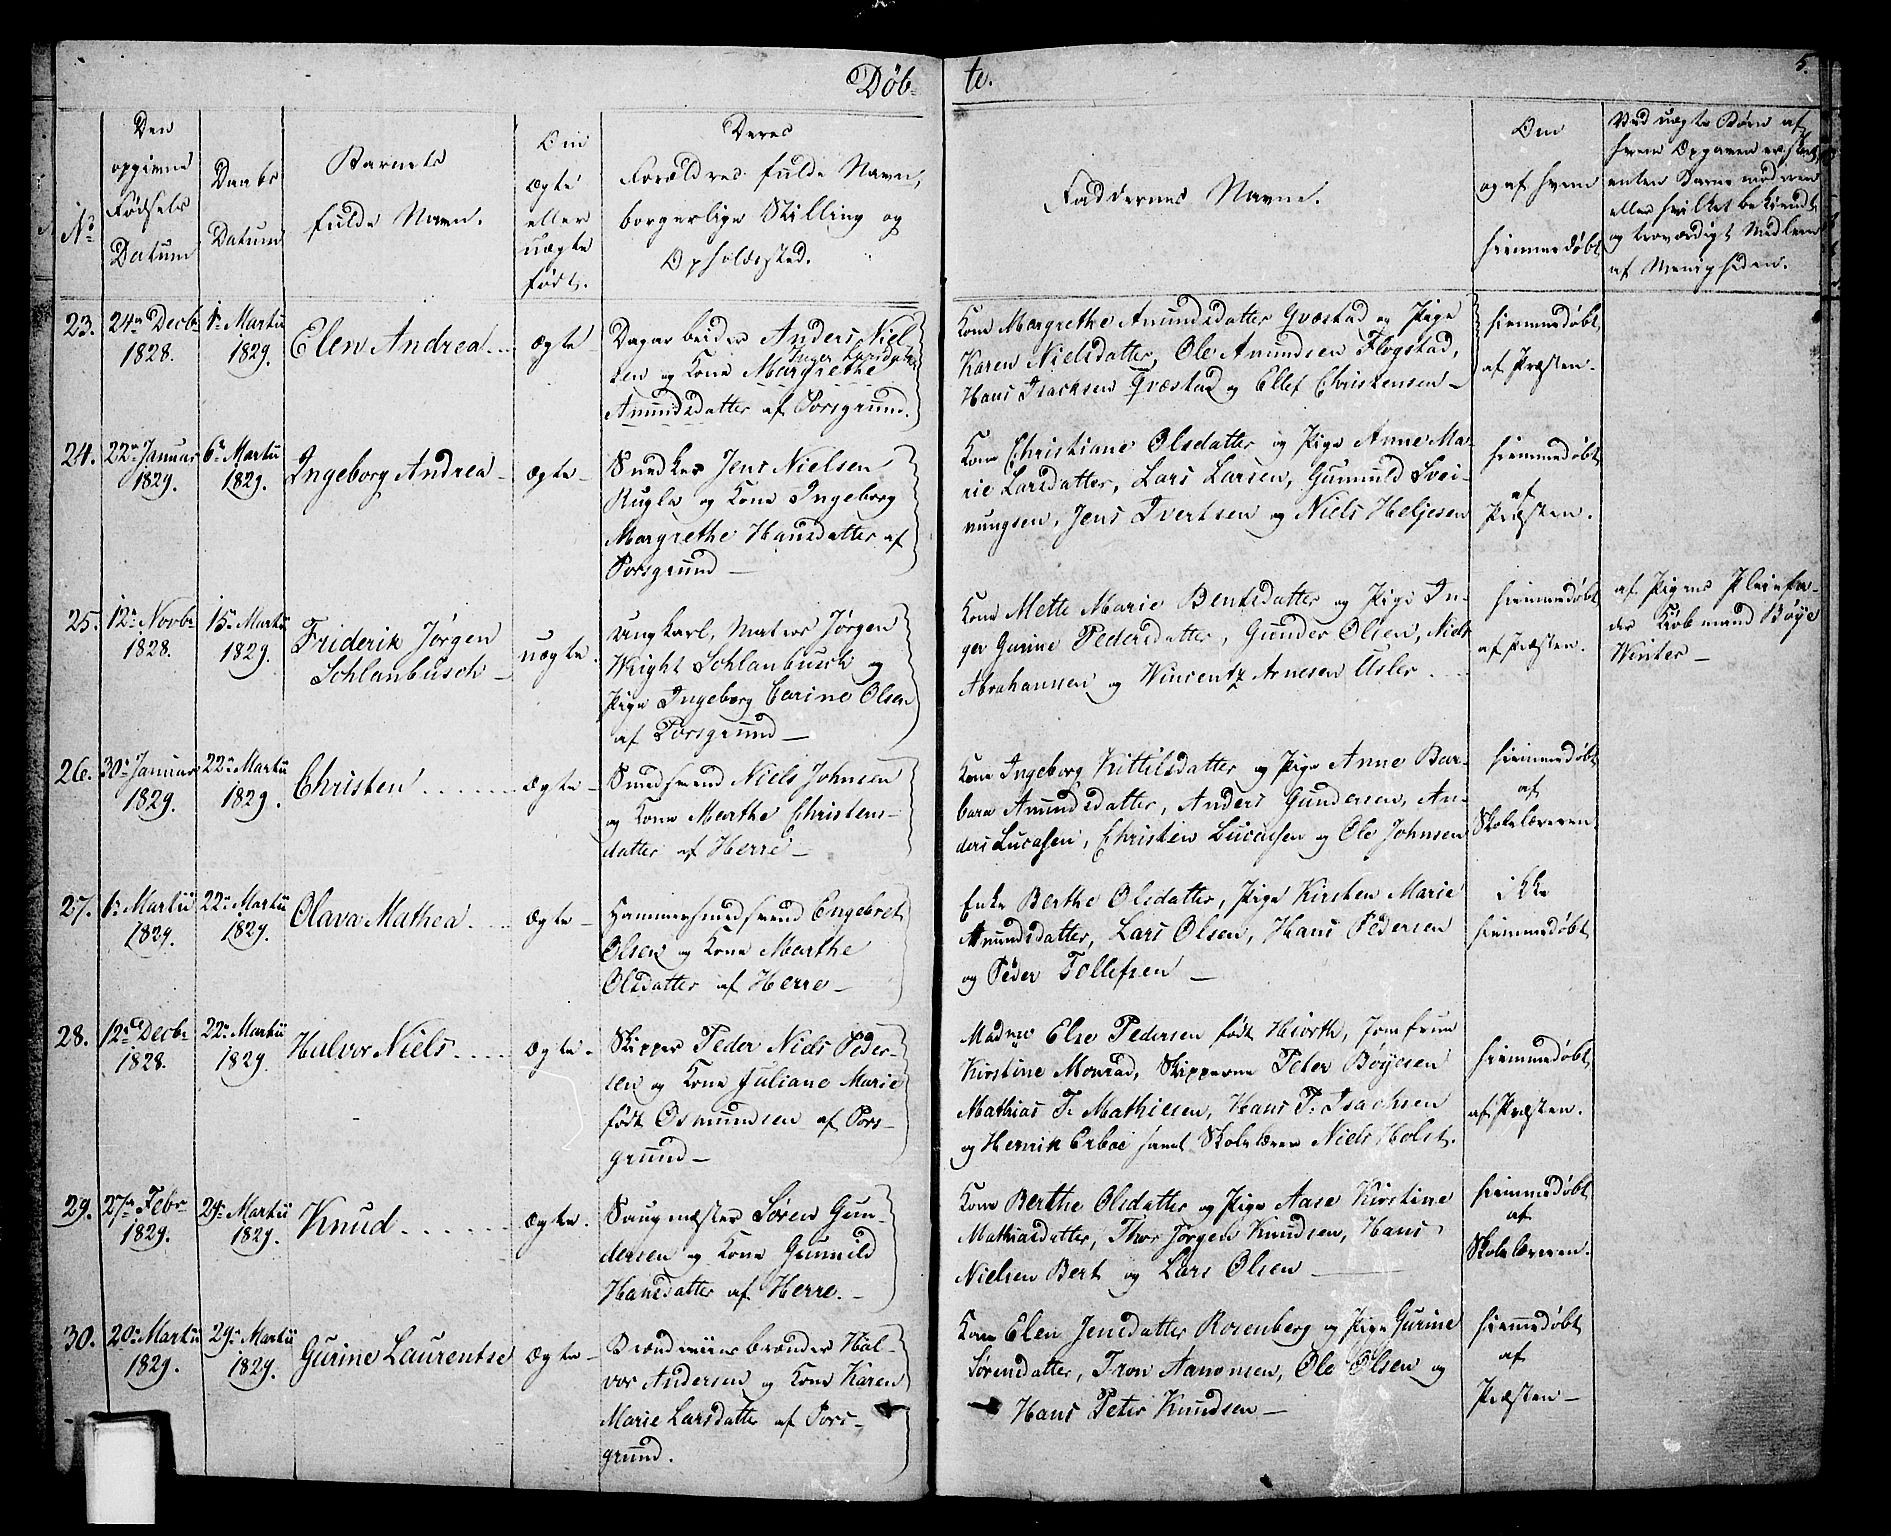 Døb-
te.
5.
No
Den
opgivne
Fødsels
Datum
Daabs
Datum
Barnets
fulde Navn.
Om
ægte
eller
uægte
født.
Deres
Forældres fulde Navn,
borgerlige Stilling og
Opholdssted.
Faddernes Navne.
Om
og af hvem
hjemmedøbt
Ved uægte Børn af
hvem Opgaven er skeet
enten Barnemoderen
eller hvilket bekiendt
og troværdigt Medlem
af Menigheden.
23.
24de Decbr
1828.
1e Martii
1829.
Elen Andrea
ægte
Dagarbeider Anders Niel-
sen og Kone Margrethe
Inger Larsdatter
Amundsdatter af Porsgrund.
Kone Margrethe Amundsdatter Qvæstad og Pige
Karen Nielsdatter, Ole Amundsen Flogstad,
Hans Isachsen Qvæstad og Ellef Christensen
hjemmedøbt
af Præsten.
24.
22de Januar
1829.
6te Martii
1829.
Ingeborg Andrea
ægte
Snedker Jens Nielsen
Kugle og Kone Ingeborg
Margrethe Hansdatter af
Porsgrund
Kone Christiane Olsdatter og Pige Anne Ma-
rie Larsdatter, Lars Larsen, Gunnuld Svei-
nungsen, Jens Ivertsen og Niels Heljesen
hjemmedøbt
af
Præsten.
25.
12te Novbr
1828.
15de Martii
1829.
Friderik Jørgen
Schlanbusch
uægte
Ungkarl, Matros Jørgen
Wright Schlanbusch og
Pige Ingeborg Carine Olsen
af Porsgrund
Kone Mette Marie Bentsdatter og Pige In-
ger Gurine Pedersdatter, Gunder Olsen, Niels
Abrahamsen og Wincentz Arnesen Usler
hjemmedøbt
af Præsten.
af Pigens Pleiefa-
der Kiøbmand Bøye
Winter
26.
30te Januar
1829.
22de Martii
1829.
Christen
ægte
Smedsvend Niels Johnsen
og Kone Marthe Christens-
datter af Herre
Kone Ingeborg Kittilsdatter og Pige Anne Bar-
bara Amundsdatter, Anders Gundersen, An-
ders Lucassen, Christen Lucassen og Ole Johnsen
hjemmedøbt
af
Skolelæreren.
27.
6te Martii
1829.
22de Martii
1829.
Olava Mathea
ægte
Hammersmedsvend Engebret
Olsen og Kone Marthe
Olsdatter af Herre
Enke Berthe Olsdatter, Pige Kirsten Marie
Amundsdatter, Lars Olsen, Hans Pedersen
og Peder Tollefsen
ikke
hjemmedøbt
28.
12te Decbr
1828.
22de Martii
1829.
Halvor Niels
ægte
Skipper Peder Niels Peder-
sen og Kone Juliane Marie
født Osmundsen af Pors-
grund
Madam Else Pedersen født Hiorth, Jomfrue
Kirstine Monrad, Skipperne Peter Bøyesen
Mathias T. Mathiesen, Hans P. Isachsen
og Henrik Erboe samt Skolelærer Niels Holst.
hjemmedøbt
af Præsten.
29.
27de Febr
1829.
29de Martii
1829.
Knud
ægte
Saugmæster Søren Gun-
dersen og Kone Gunnild
Hansdatter af Herre.
Kone Berthe Olsdatter og Pige Aase Kirstine
Mathiasdatter, Thor Jørgen Knudsen, Hans
Nielsen Bert og Lars Olsen
hjemmedøbt
af
Skolelæreren.
30.
20de Martii
1829.
29de Martii
1829.
Gurine Laurentse
ægte
Brændeviinsbrænder Hal-
vor Andersen og Kone Karen
Marie Larsdatter af Pors-
grund.
Kone Elen Jensdatter Rosenberg og Pige Gurine
Sørensdatter, Tron Aanonsen, Ole Olsen og
Hans Peter Knudsen
hjemmedøbt
af
Præsten